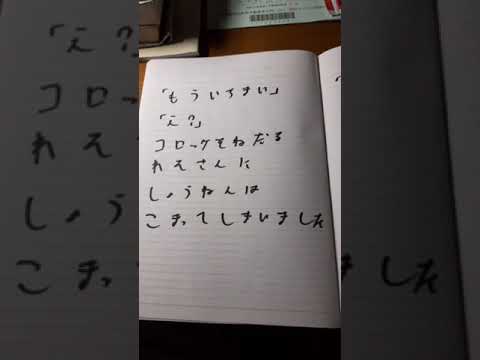 「もういちまい」
「え?」
コロッケをねだる
れえさんに
しょうねんは
こまってしまいました